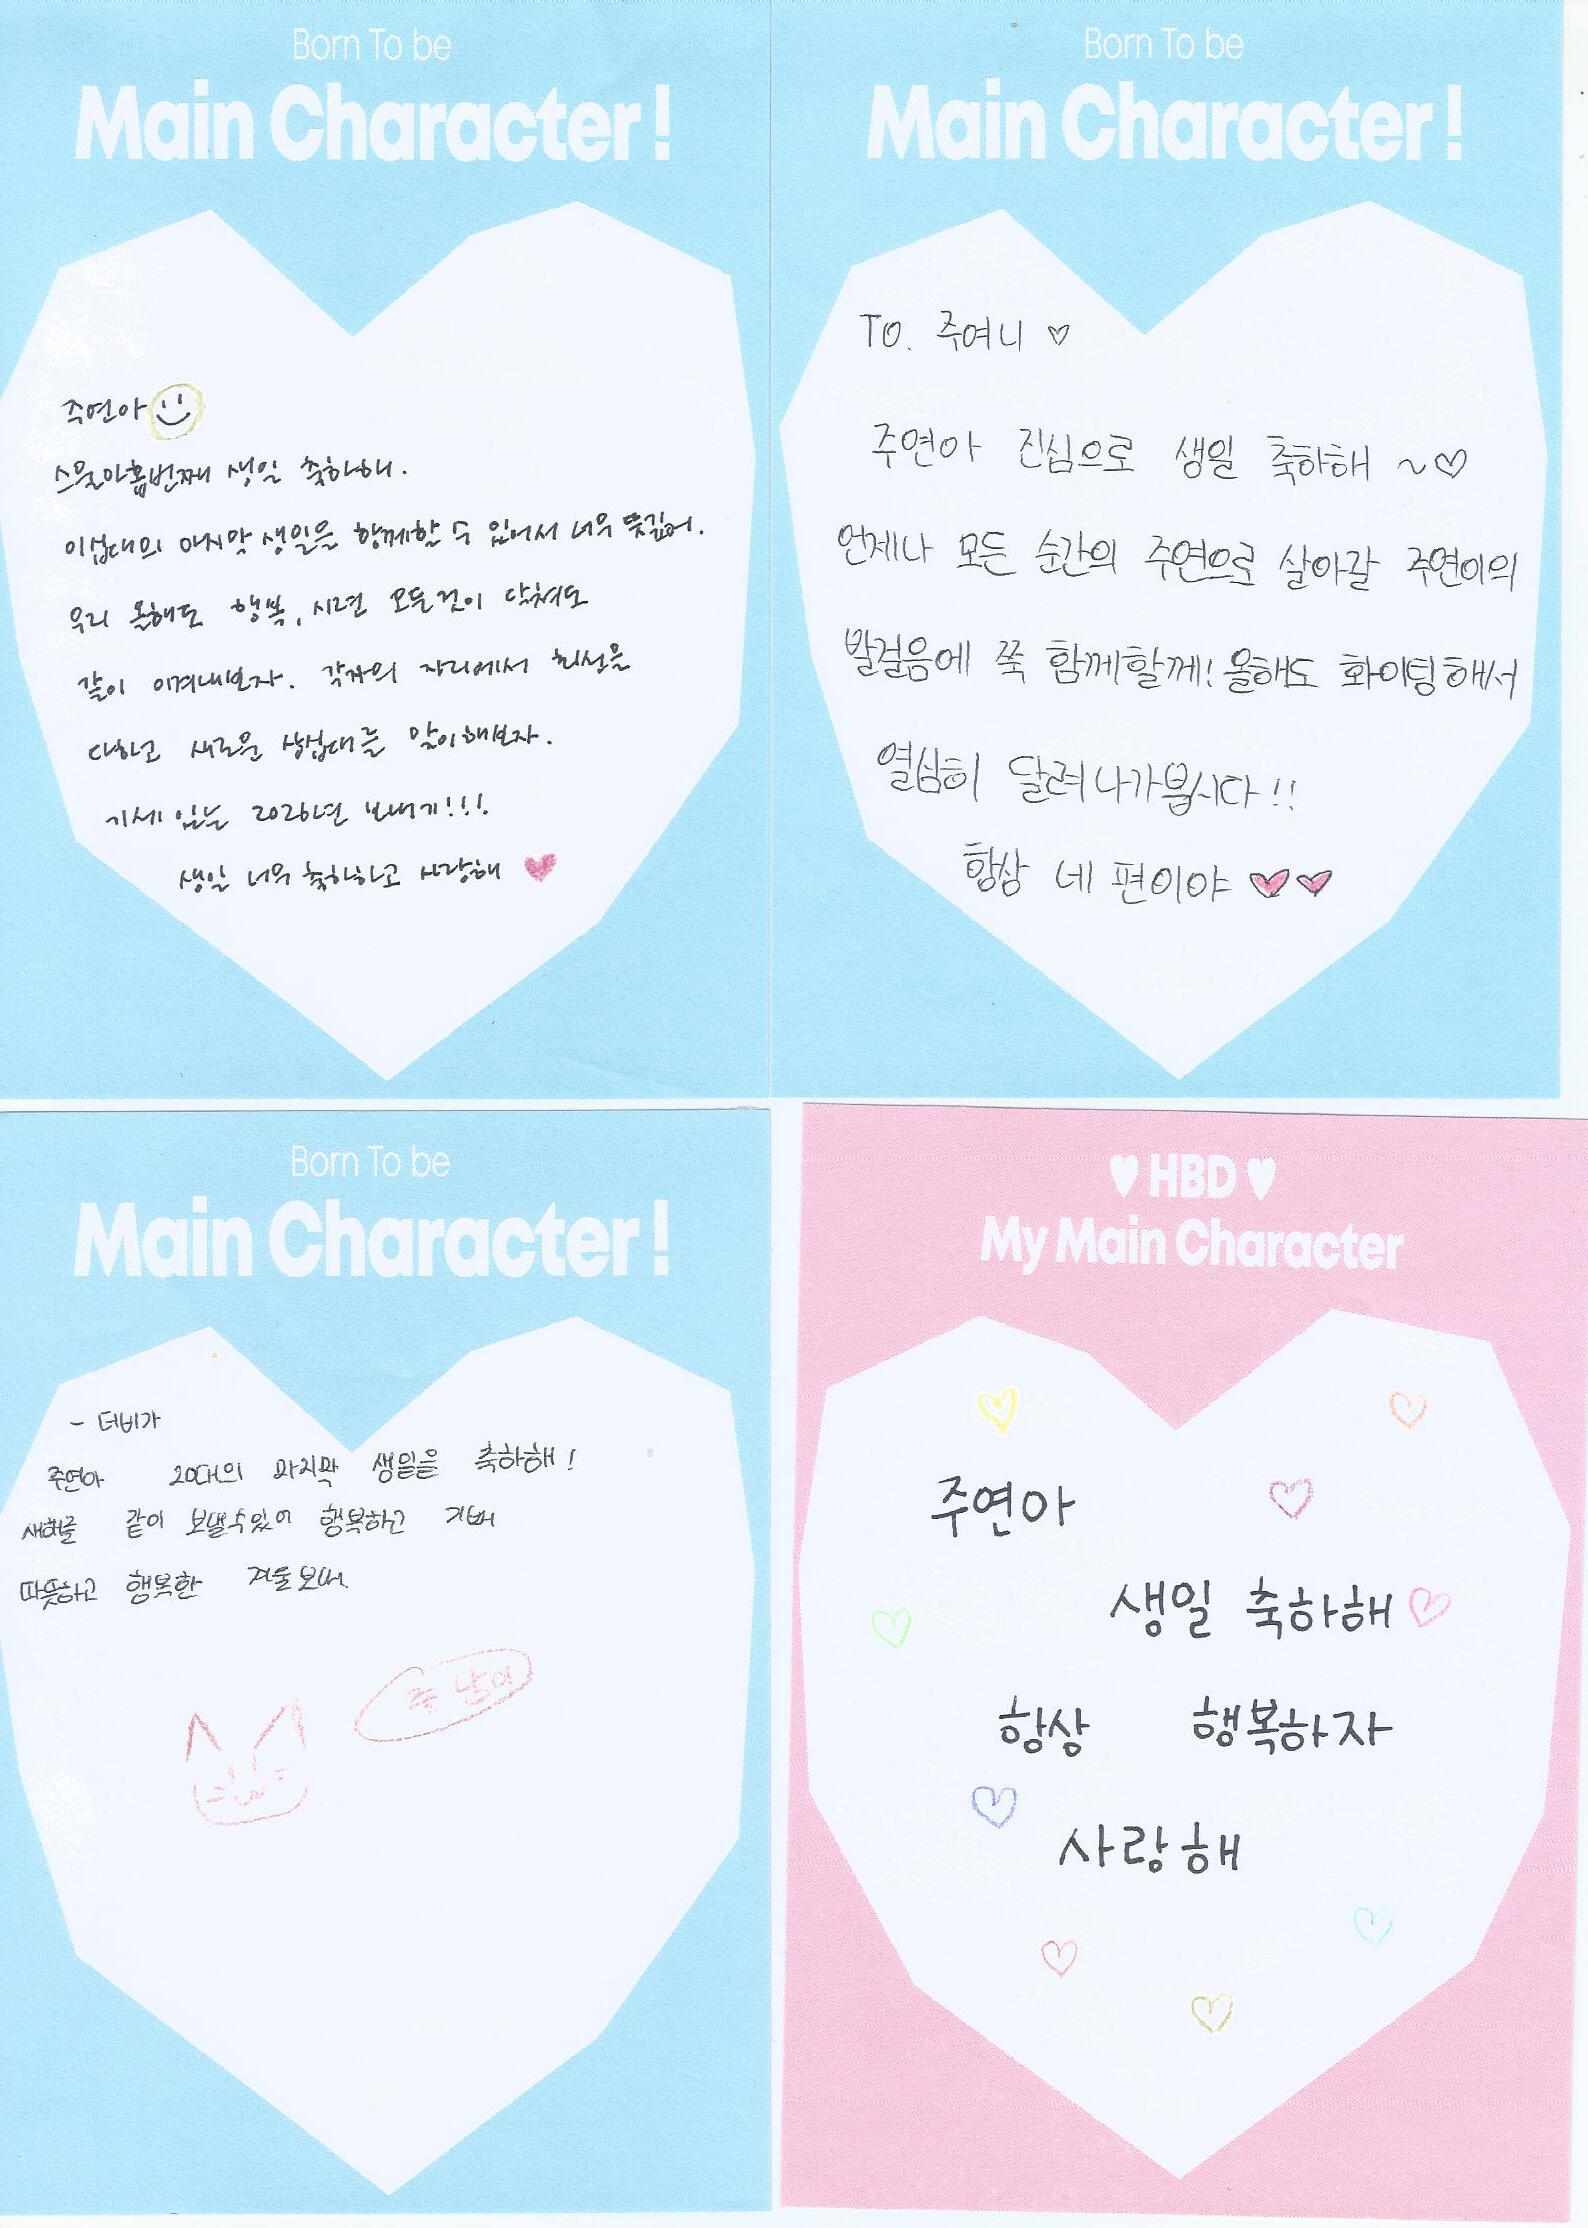 Born To be
Main Character!
주연아
스물아홉번째 생일 축하해.
이십대의 마지막 생일을 함께할 수 있어서 너무 뜻깊어.
우리 올해도 행복, 시련 모든것이 닥쳐도
같이 이겨내보자. 각자의 자리에서 최선을
다하고 새로운 삼십대를 맞이해보자.
기세 있는 2026년 보내기!!!
생일 너무 축하하고 사랑해 ♥
Born To be
Main Character!
TO. 주여니 ♡
주연아 진심으로 생일 축하해 ~♡
언제나 모든 순간의 주연으로 살아갈 주연이의
발걸음에 쭉 함께할께! 올해도 화이팅해서
열심히 달려나가봅시다!!
항상 네 편이야 ♥♥
Born To be
Main Character!
- 더비가
주연아 20대의 마지막 생일을 축하해!
새해를 같이 보낼수있어 행복하고 기뻐
따뜻하고 행복한 겨울보내.
♥ HBD ♥
My Main Character
주연아
생일 축하해
항상 행복하자
사랑해